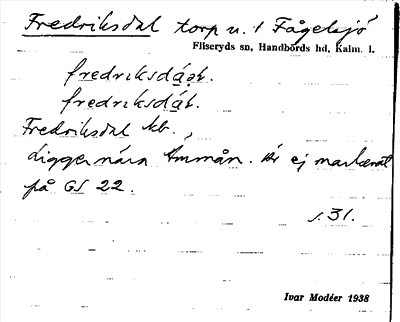 Fredriksdal torp u. 1 Fågelsjö
Fliseryds sn, Handbörds hd, Kalm. l.
fredriksdáɑt.
fredriksdát.
Fredriksdal kb.
Ligger nära Emmån. Är ej markerat
på GS 22.
s. 31.
Ivar Modéer 1938